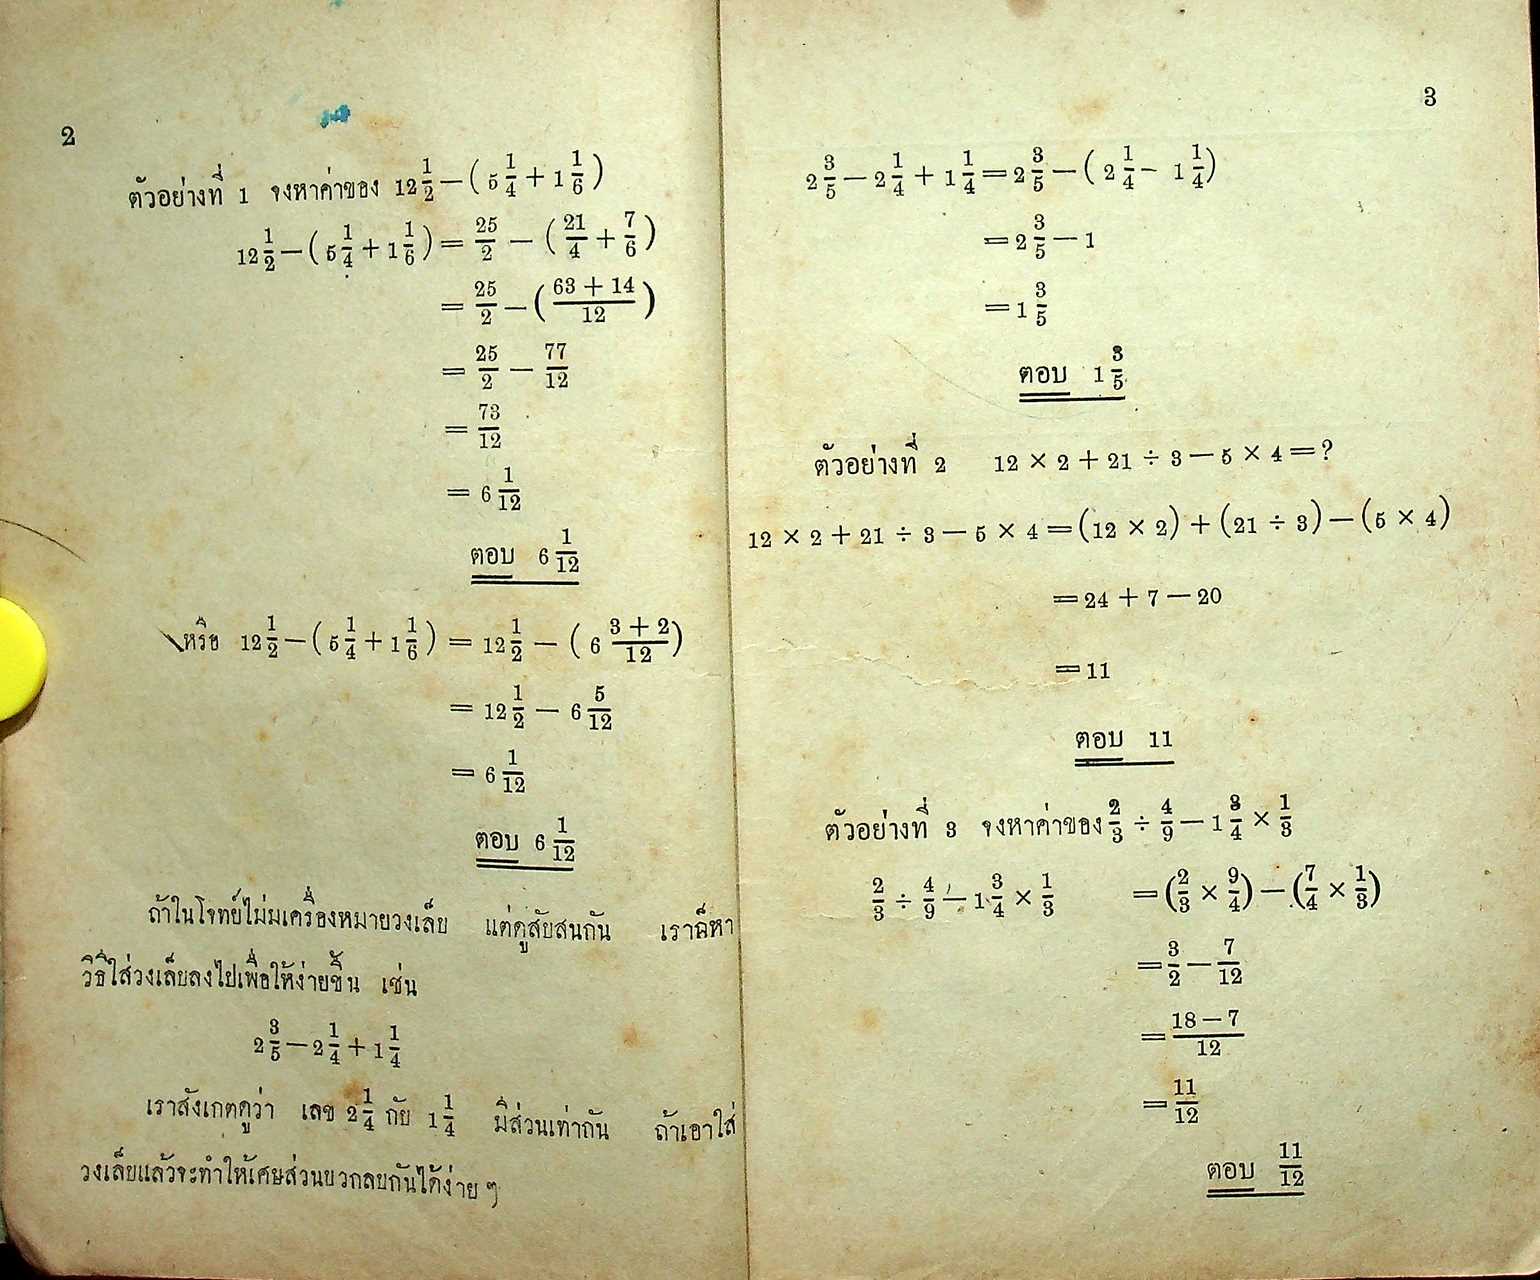 2
ตัวอย่างที่ 1 จงหาค่าของ 12 1/2 − ( 5 1/4 + 1 1/6 )
12 1/2 − ( 5 1/4 + 1 1/6 ) = 25/2 − ( 21/4 + 7/6 )
= 25/2 − ( (63 + 14)/12 )
= 25/2 − 77/12
= 73/12
= 6 1/12
ตอบ 6 1/12
หรือ 12 1/2 − ( 5 1/4 + 1 1/6 ) = 12 1/2 − ( 6 (3 + 2)/12 )
= 12 1/2 − 6 5/12
= 6 1/12
ตอบ 6 1/12
ถ้าในโจทย์ไม่มีเครื่องหมายวงเล็บ แต่ดูสับสนกัน เราก็หา
วิธีใส่วงเล็บลงไปเพื่อให้ง่ายขึ้น เช่น
2 3/5 − 2 1/4 + 1 1/4
เราสังเกตดูว่า เลข 2 1/4 กับ 1 1/4 มีส่วนเท่ากัน ถ้าเอาใส่
วงเล็บแล้วจะทำให้เศษส่วนบวกลบกันได้ง่าย ๆ
3
2 3/5 − 2 1/4 + 1 1/4 = 2 3/5 − ( 2 1/4 − 1 1/4 )
= 2 3/5 − 1
= 1 3/5
ตอบ 1 3/5
ตัวอย่างที่ 2 12 × 2 + 21 ÷ 3 − 5 × 4 = ?
12 × 2 + 21 ÷ 3 − 5 × 4 = (12 × 2) + (21 ÷ 3) − (5 × 4)
= 24 + 7 − 20
= 11
ตอบ 11
ตัวอย่างที่ 3 จงหาค่าของ 2/3 ÷ 4/9 − 1 3/4 × 1/3
2/3 ÷ 4/9 − 1 3/4 × 1/3 = (2/3 × 9/4) − (7/4 × 1/3)
= 3/2 − 7/12
= (18 − 7)/12
= 11/12
ตอบ 11/12